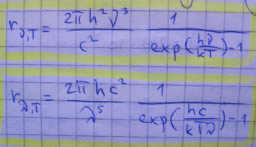 r_{ν,T} = \frac{2πh^2ν^3}{c^2} \frac{1}{exp(\frac{hν}{kT})-1}
r_{λ,T} = \frac{2πhc^2}{λ^5} \frac{1}{exp(\frac{hc}{kTλ})-1}